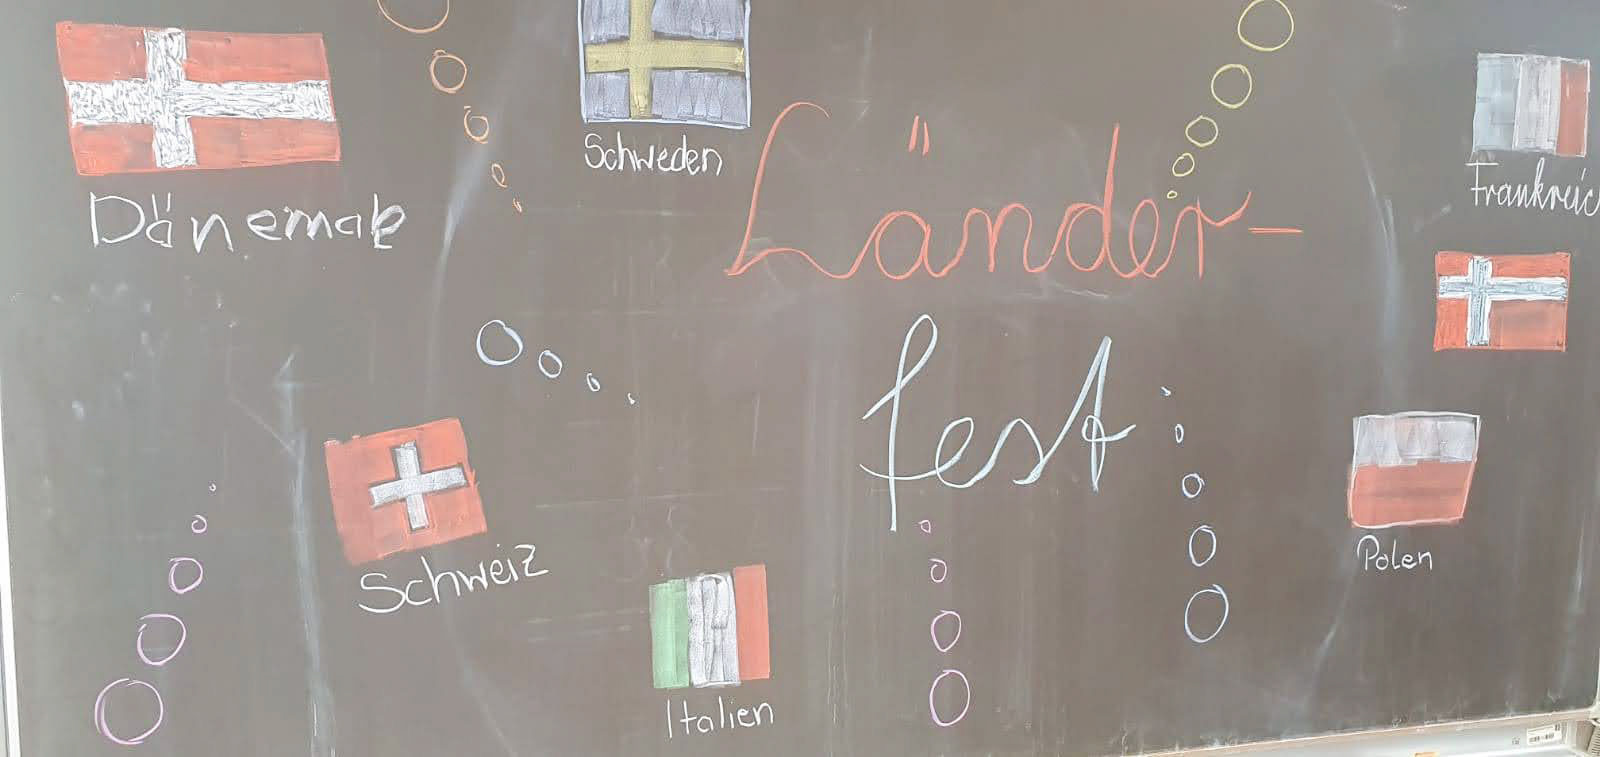 Schweden
Dänemak
Länder-
fest
Frankreic
Schweiz
Polen
Italien